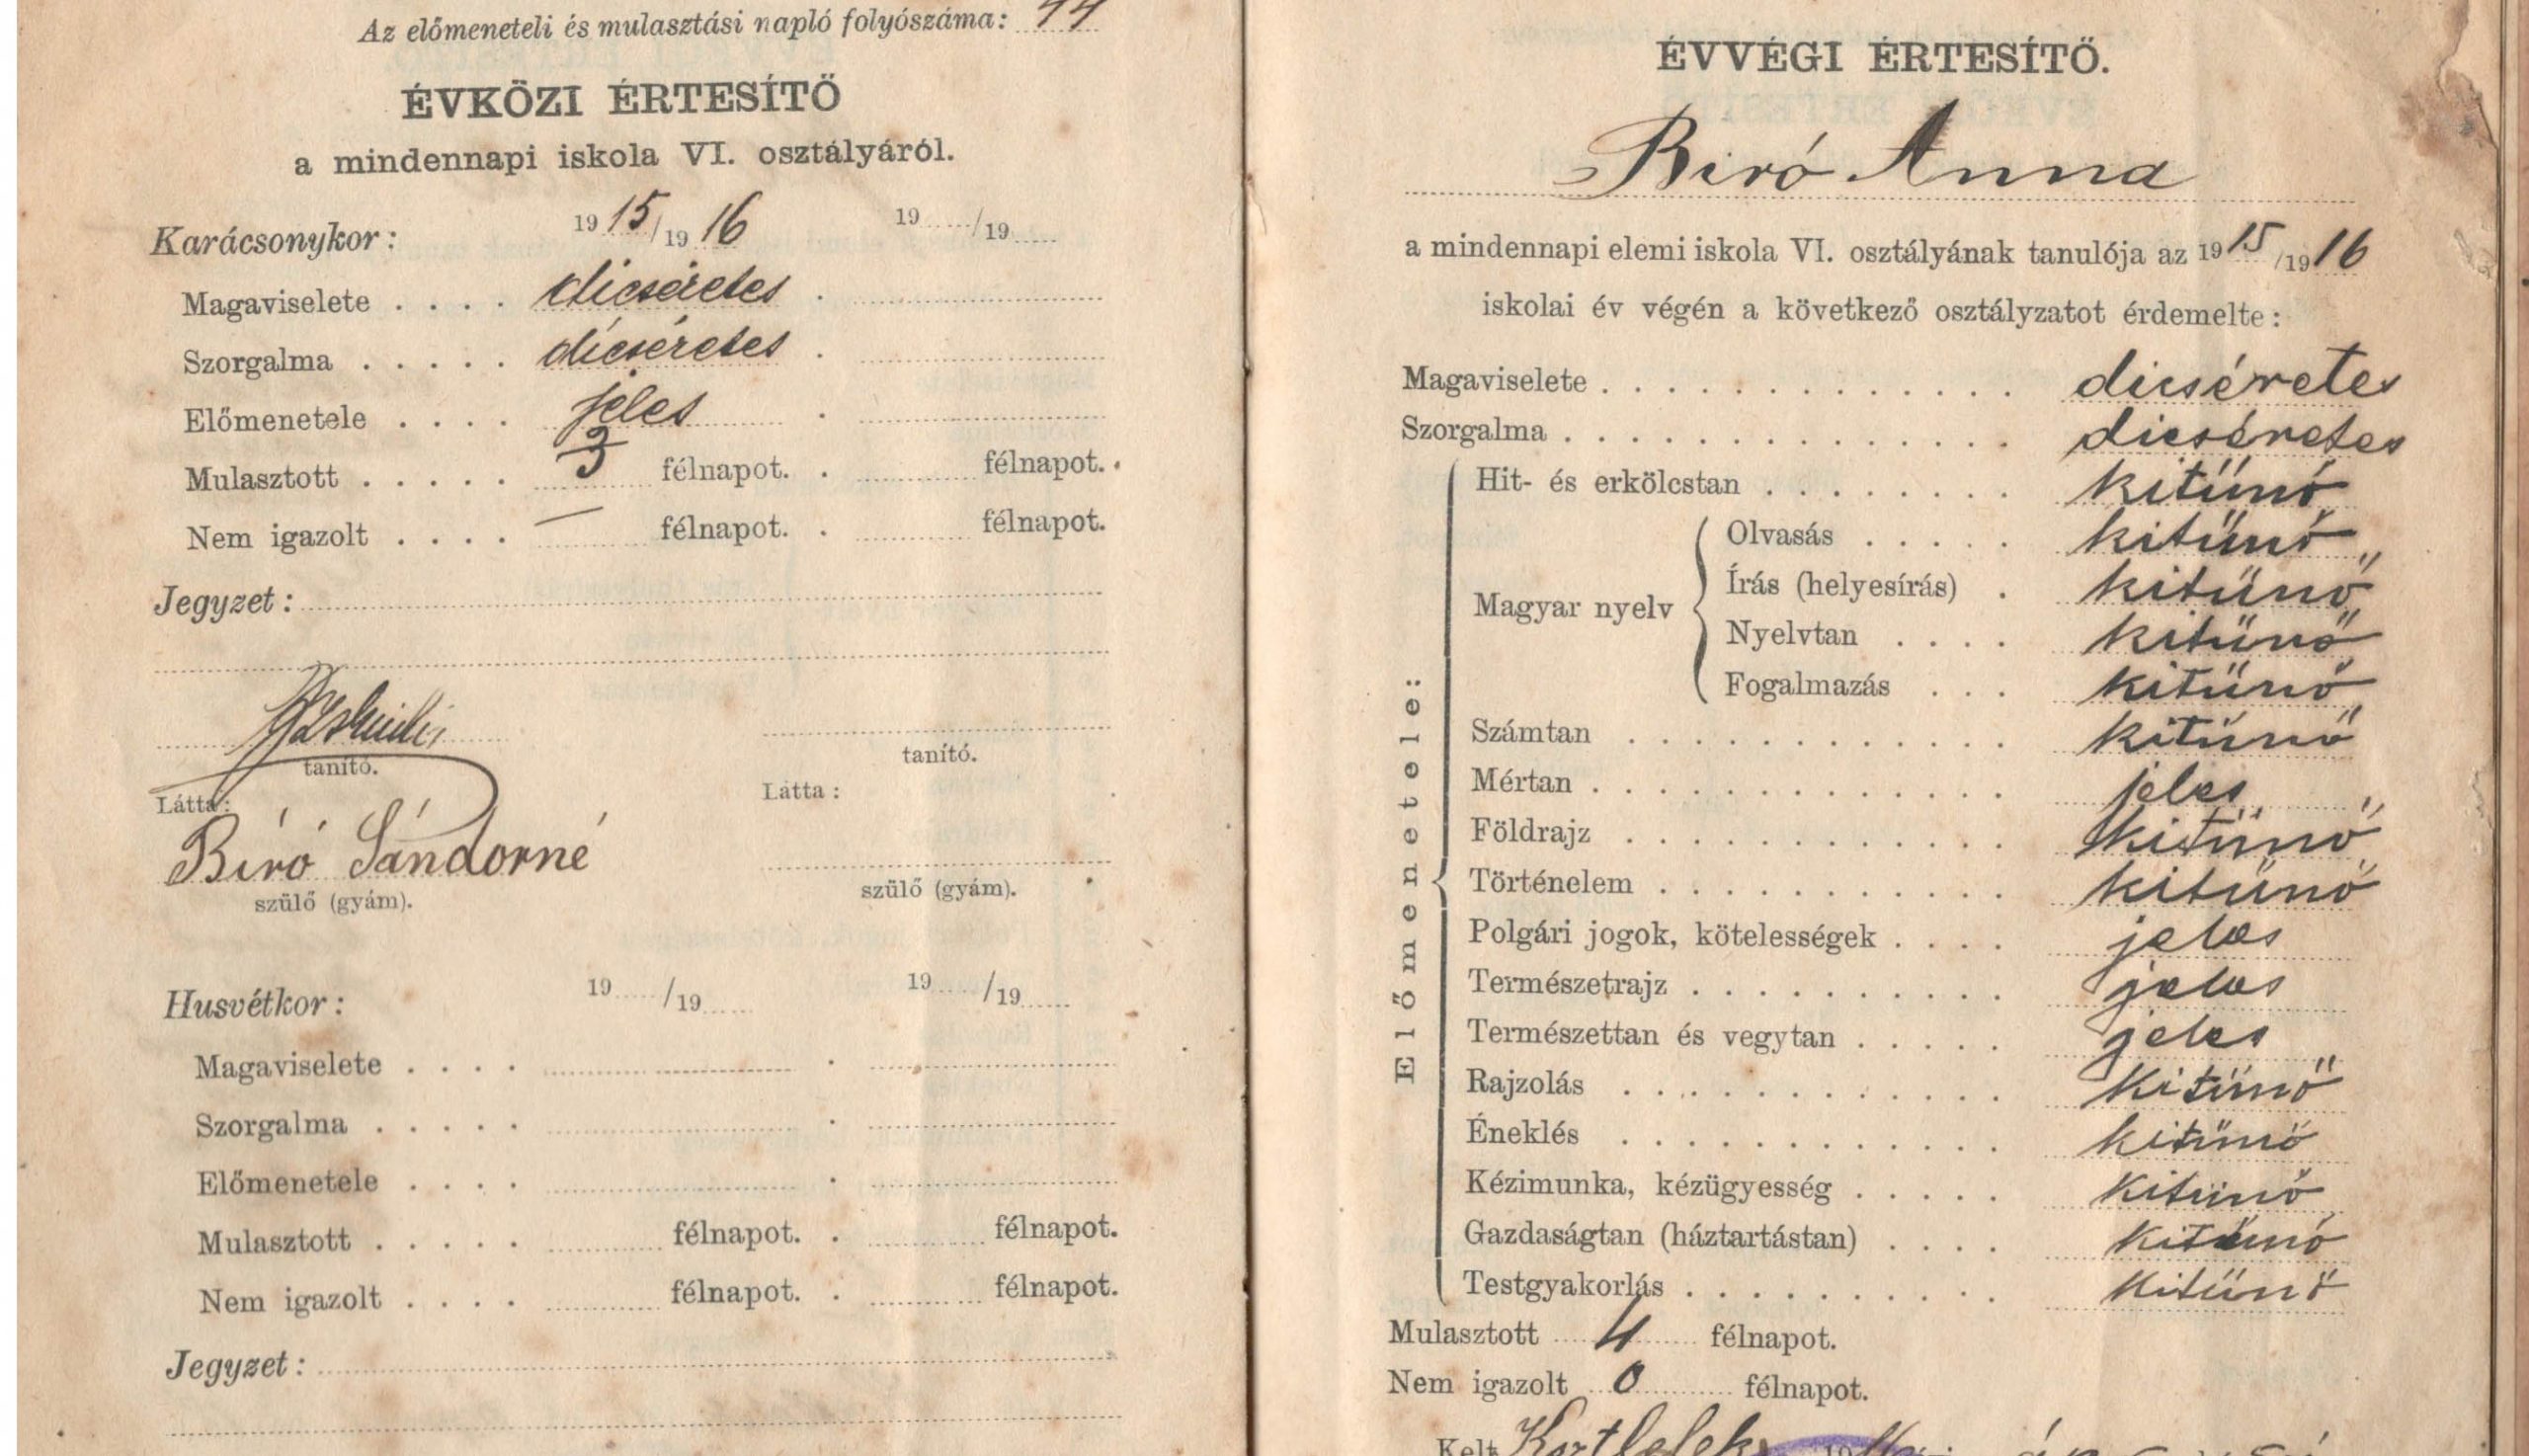 Az előmeneteli és mulasztási napló folyószáma: 44
ÉVKÖZI ÉRTESÍTŐ
a mindennapi iskola VI. osztályáról.
Karácsonykor: 1915/1916 19...../19.....
Magaviselete . . . . dicséretes .
Szorgalma . . . . . dicséretes .
Előmenetele . . . . jeles .
Mulasztott . . . . . 3 félnapot. . félnapot.
Nem igazolt . . . . — félnapot. . félnapot.
Jegyzet:
tanító. tanító.
Látta: Látta:
Bíró Sándorné
szülő (gyám). szülő (gyám).
Husvétkor: 19...../19..... 19...../19.....
Magaviselete . . . . .
Szorgalma . . . . . .
Előmenetele . . . . .
Mulasztott . . . . . félnapot. . félnapot.
Nem igazolt . . . . félnapot. . félnapot.
Jegyzet:
ÉVVÉGI ÉRTESÍTŐ.
Biró Anna
a mindennapi elemi iskola VI. osztályának tanulója az 1915/1916
iskolai év végén a következő osztályzatot érdemelte:
Magaviselete . . . . . dicséretes
Szorgalma . . . . . dicséretes
Előmenetele:
Hit- és erkölcstan . . . . . kitünó
Magyar nyelv
Olvasás . . . . . kitünó
Írás (helyesírás) . kitünő
Nyelvtan . . . . kitünő
Fogalmazás . . . kitünő
Számtan . . . . . kitünő
Mértan . . . . . jeles
Földrajz . . . . . kitünő
Történelem . . . . . kitünő
Polgári jogok, kötelességek . . . . jeles
Természetrajz . . . . . jeles
Természettan és vegytan . . . . . jeles
Rajzolás . . . . . kitünő
Éneklés . . . . . kitünő
Kézimunka, kézügyesség . . . . . kitünő
Gazdaságtan (háztartástan) . . . . kitünó
Testgyakorlás . . . . . kitünő
Mulasztott 4 félnapot.
Nem igazolt 0 félnapot.
Kelt